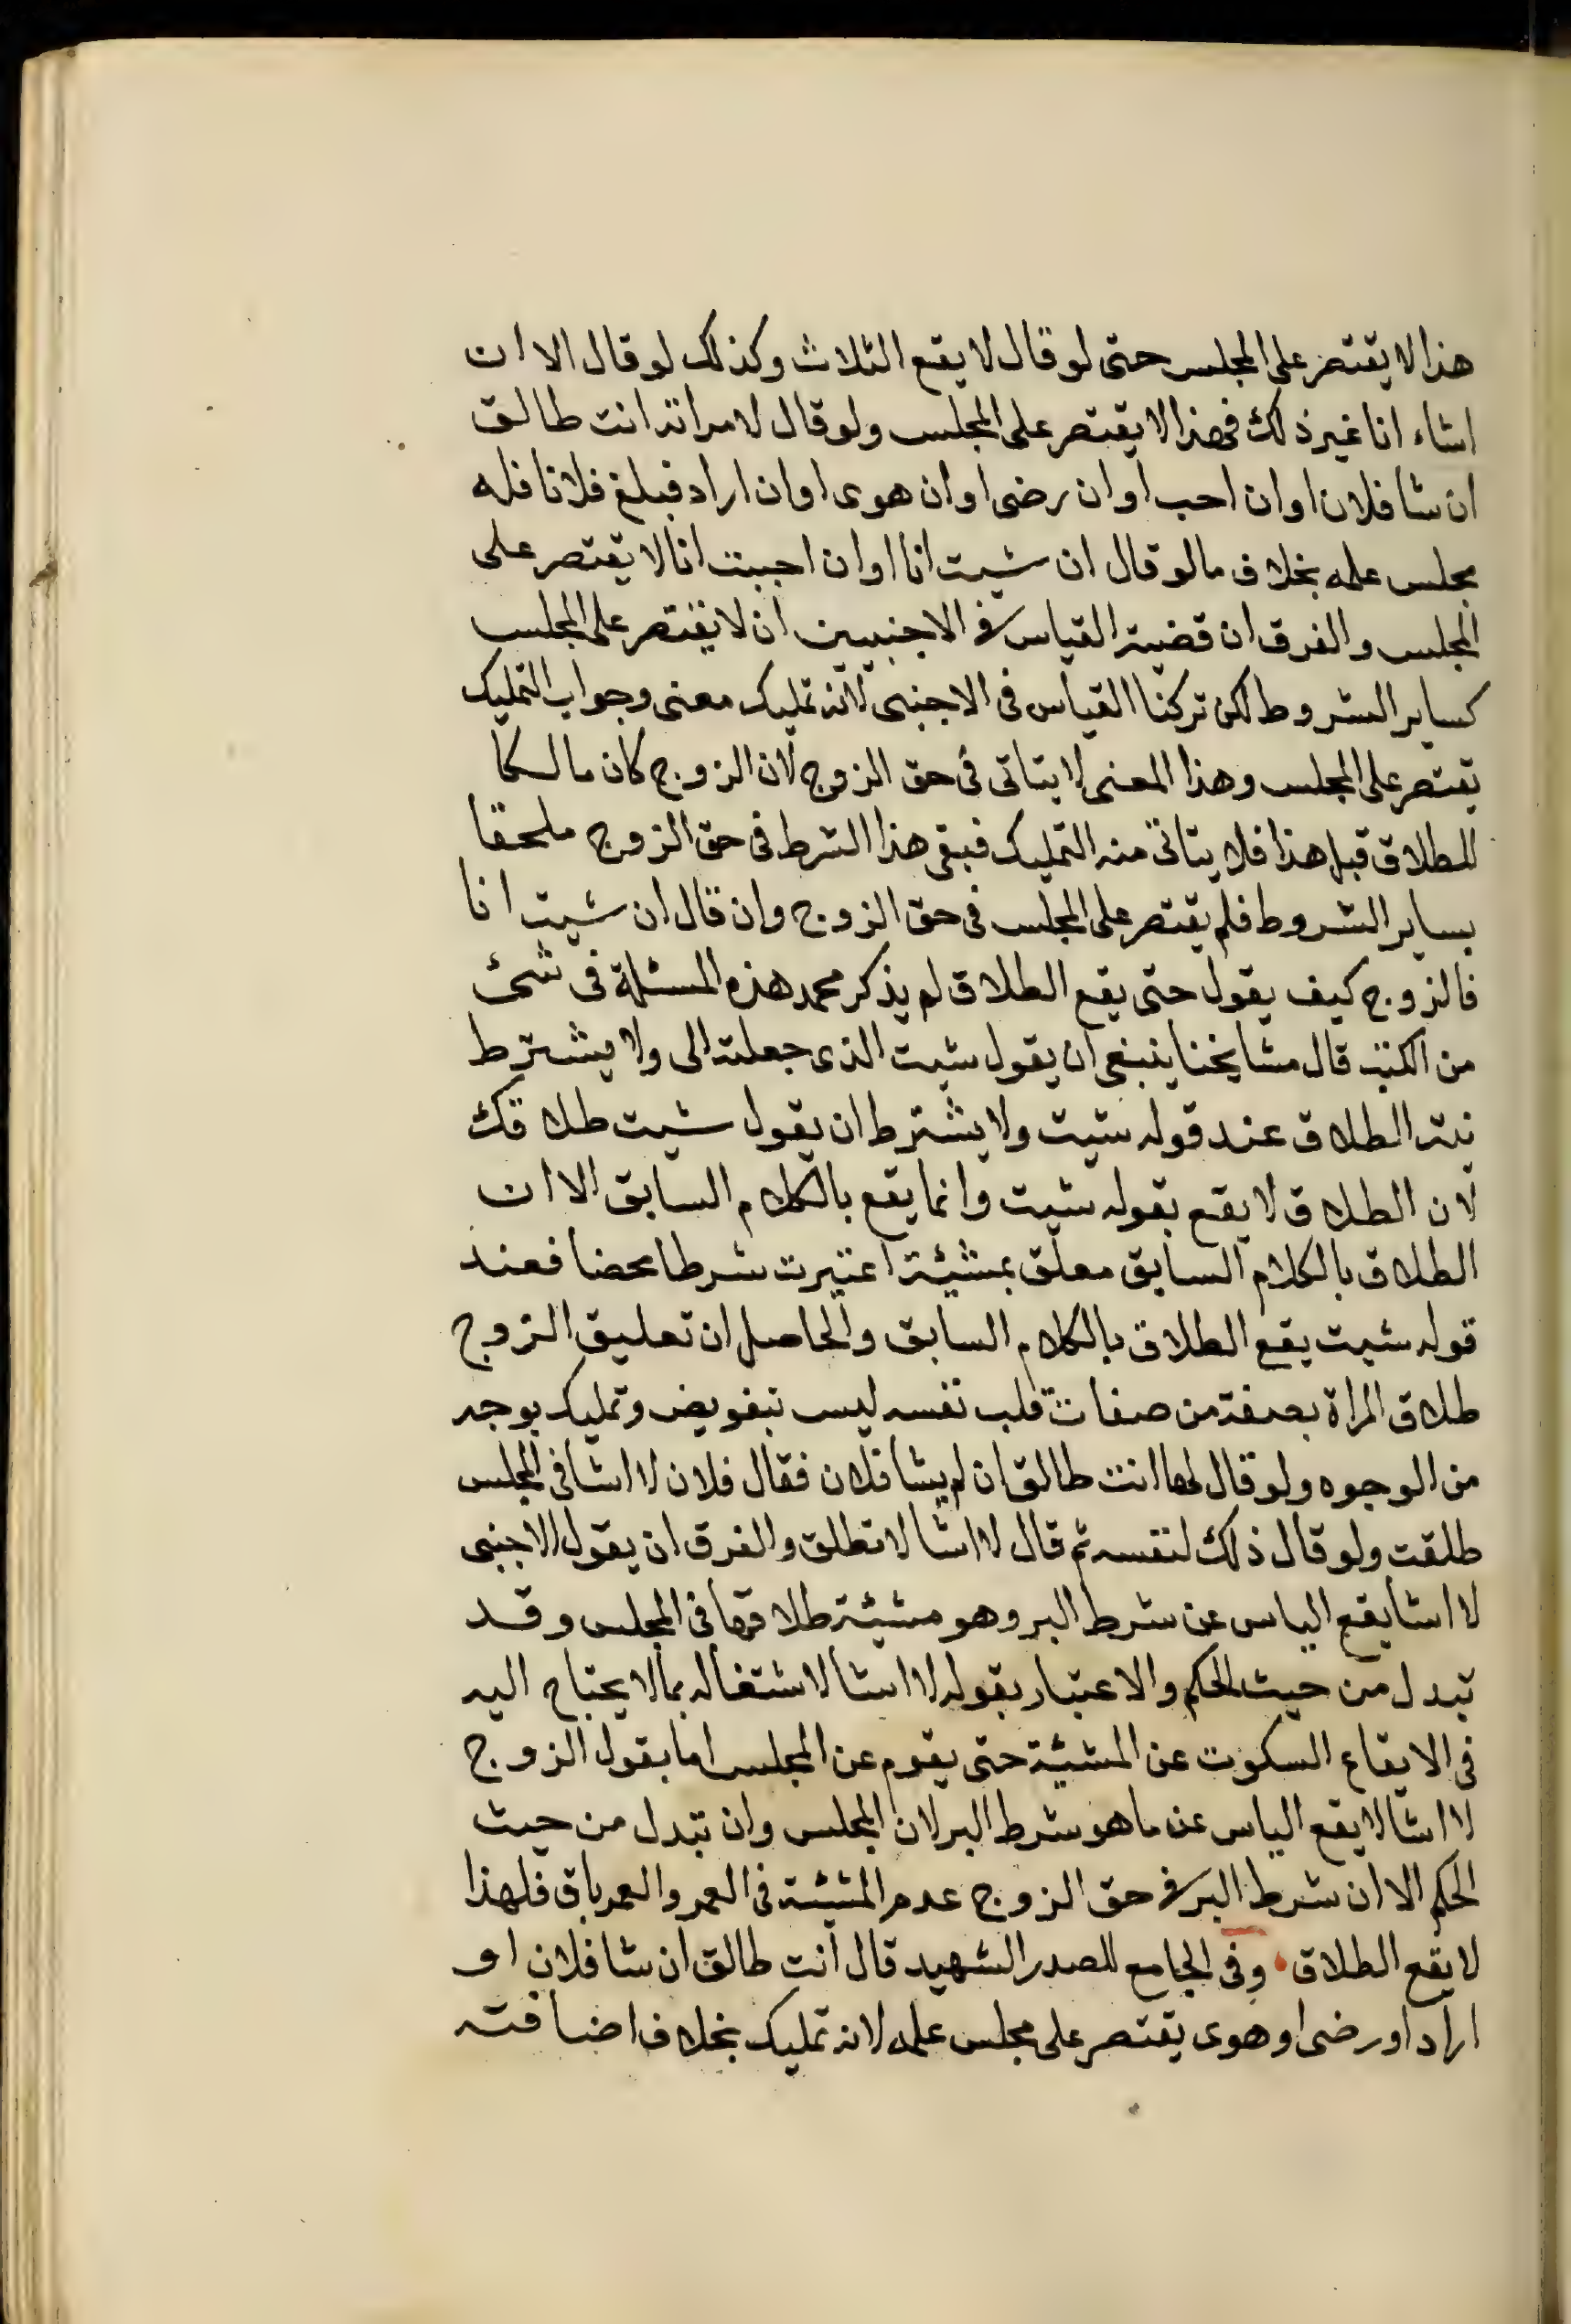 هذا لا يقتصر على المجلس حتى لو قال لا يقع الثلاث وكذلك لو قال الا ان
اشاء انا غير ذلك فهذا لا يقتصر على المجلس ولو قال لامراته انت طالق
ان شا فلان او ان احب او ان رضى او ان هوى او ان اراد فبلغ فلانا فله
مجلس علمه بخلاف ما لو قال ان شيت انا او ان احببت انا لا يقتصر على
المجلس والفرق ان قضية القياس فى الاجنبيين ان لا يقتصر على المجلس
كساير الشروط لكن تركنا القياس فى الاجنبى لانه تمليك معنى وجواب التمليك
يقتصر على المجلس وهذا المعنى لا يتاتى فى حق الزوج لان الزوج كان مالكا
للطلاق قبل هذا فلا يتاتى منه التمليك فبقى هذا الشرط فى حق الزوج ملحقا
بساير الشروط فلم يقتصر على المجلس فى حق الزوج وان قال ان شيت انا
فالزوج كيف يقول حتى يقع الطلاق لم يذكر محمد هذه المسئلة فى شئ
من الكتب قال مشايخنا ينبغى ان يقول شيت الذى جعلته الى ولا يشترط
نية الطلاق عند قوله شيت ولا يشترط ان يقول شيت طلاقك
لان الطلاق لا يقع بقوله شيت وانما يقع بالكلام السابق الا ان
الطلاق بالكلام السابق معلق بمشيئة اعتبرت شرطا محضا فعند
قوله شيت يقع الطلاق بالكلام السابق والحاصل ان تعليق الزوج
طلاق المراة بصفة من صفات قلب نفسه ليس بتفويض وتمليك بوجه
من الوجوه ولو قال لها انت طالق ان لم يشا فلان فقال فلان لا اشا فى المجلس
طلقت ولو قال ذلك لنفسه ثم قال لا اشا لا تطلق والفرق ان بقول الاجنبى
لا اشا يقع الياس عن شرط البر وهو مشيئة طلاقها فى المجلس وقد
تبدل من حيث الحكم والاعتبار بقوله لا اشا لاشتغاله بما لا يحتاج اليه
فى الايقاع السكوت عن المشيئة حتى يقوم عن المجلس اما بقول الزوج
لا اشا لا يقع الياس عن ما هو شرط البر لان المجلس وان تبدل من حيث
الحكم الا ان شرط البر فى حق الزوج عدم المشيئة فى العمر والعمر باق فلهذا
لا يقع الطلاق • وفى الجامع للصدر الشهيد قال انت طالق ان شا فلان او
اراد او رضى او هوى يقتصر على مجلس علمه لانه تمليك بخلاف اضافته